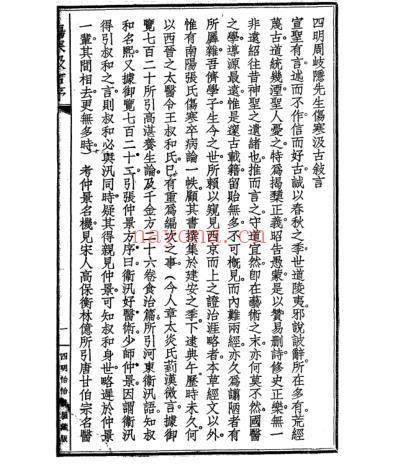 四明周岐隱先生傷寒汲古敘言
宣聖有言述而不作信而好古誠以春秋之季世道陵夷邪說詖辭所在多有荒經
蔑古道統幾湮聖人憂之特為揭櫫正義昭告愚蒙是以贊易刪詩修史正樂無一
非遠紹往昔神聖之遺緒也推而言之守宜然即在藝術之末亦何莫不然國醫
之學導源最遠惟是邃古載籍留貽無多不可概見而內難兩經亦久為譾陋者有
惟有南陽張氏傷寒卒病論一帙顧其書撰集於建安之季下逮典午歷時未久何
所羼雜吾儕學子生今之世所賴以窺見西京而上之證治涯略者本草經文以外
以西晉之太醫令王叔和氏已有重為編次之事（今人章太炎氏菿漢微言據御
覽七百二十所引高湛養生論及千金方二十六卷食治篇所引河東衛汛語知叔
和名熙又據御覽七百二十二引張仲景方序曰衛汛好醫術少師仲景因謂衛汛
得引叔和之言則叔和必與汛同時疑其得親見仲景可知叔和身世略遲於仲景
一輩其間相去更無多時）考仲景名機見宋人高保衡林億所引唐甘伯宗名醫
一
四明怡怡
藏版
nazona.com